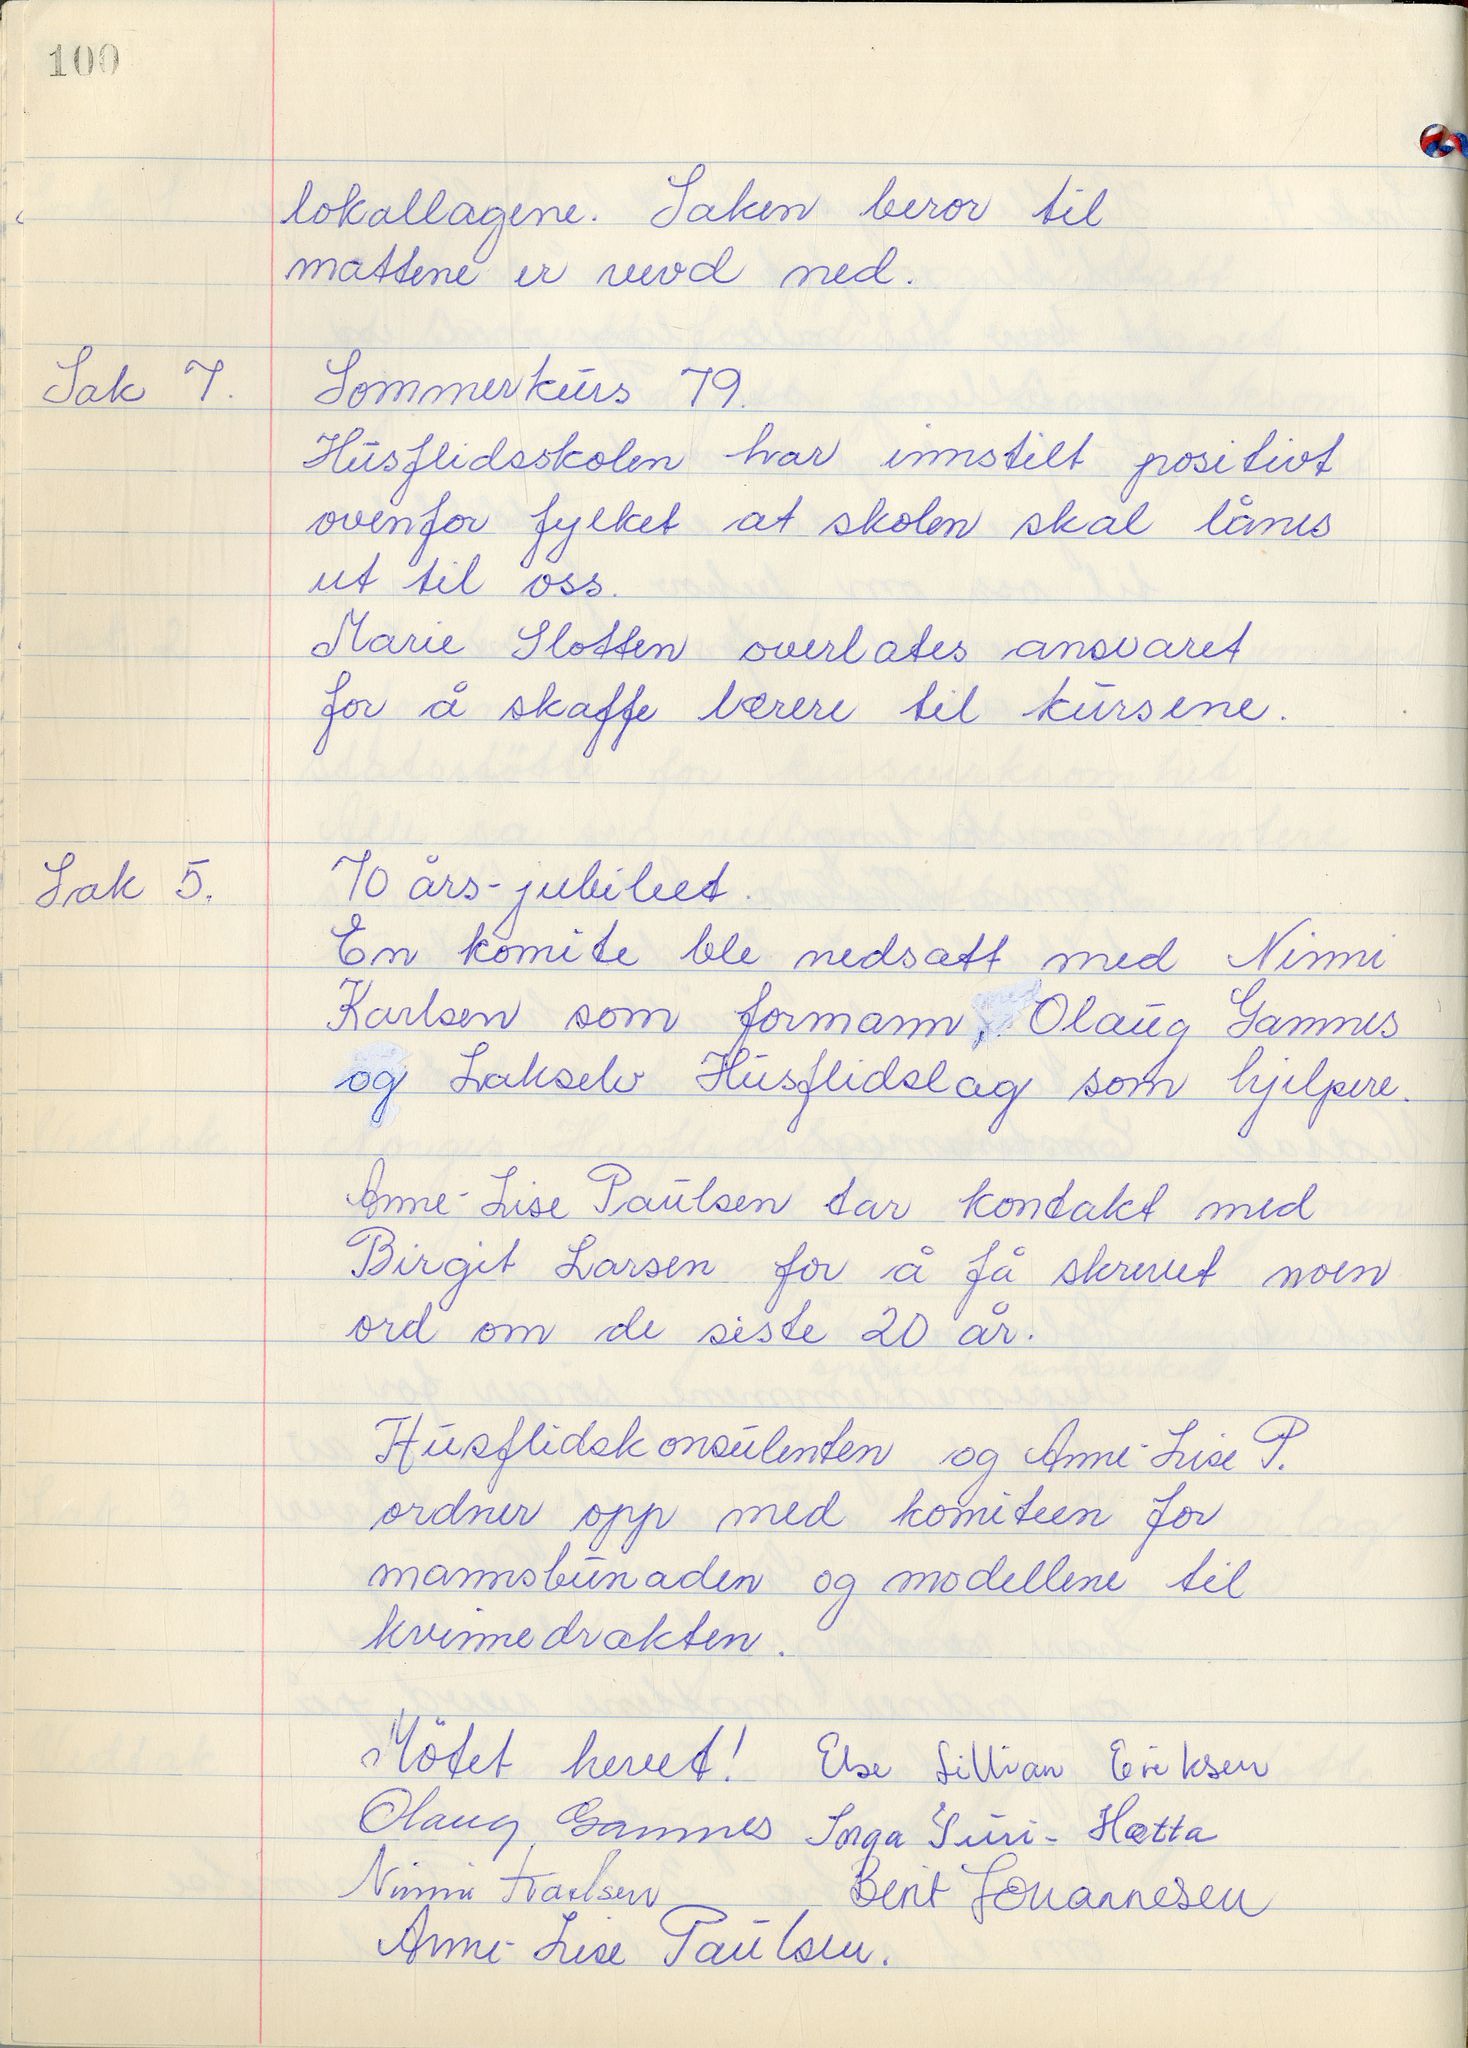 100
lokallagene. Saken beror til
mattene er vevd ned.
Sak 7. Sommerkurs 79.
Husflidsskolen har innstilt positivt
ovenfor fylket at skolen skal lånes
ut til oss.
Marie Slotten overlates ansvaret
for å skaffe lærere til kursene.
Sak 5. 70 års-jubileet.
En komite ble nedsatt med Ninni
Karlsen som formann, Olaug Gamnes
og Lakselv Husflidslag som hjelpere.
Anne-Lise Paulsen tar kontakt med
Birgit Larsen for å få skrevet noen
ord om de siste 20 år.
Husflidskonsulenten og Anne-Lise P.
ordner opp med komiteen for
mannsbunaden og modellene til
kvinnedrakten.
Mötet hevet! Else Lillian Eriksen
Olaug Gamnes Inga Juuri-Hætta
Ninni Karlsen Berit Johannesen
Anne-Lise Paulsen.